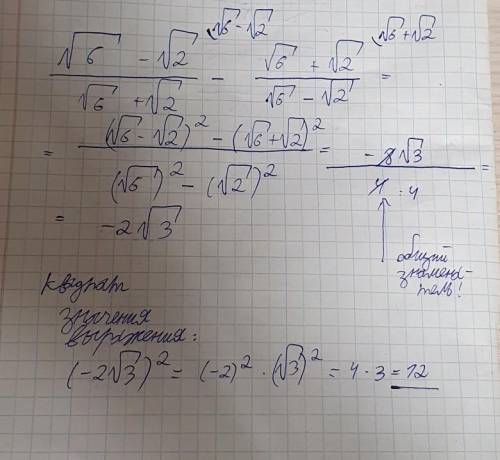 √6 - √2   √6 + √2
(√6 - √2)/(√6 + √2) - (√6 + √2)/(√6 - √2) =
= ((√6 - √2)² - (√6 + √2)²)/((√6)² - (√2)²) = (-8√3)/4 : 4 =
= -2√3
общий
знамена-
тель!
квадрат
значения
выражения:
(-2√3)² = (-2)² · (√3)² = 4 · 3 = 12